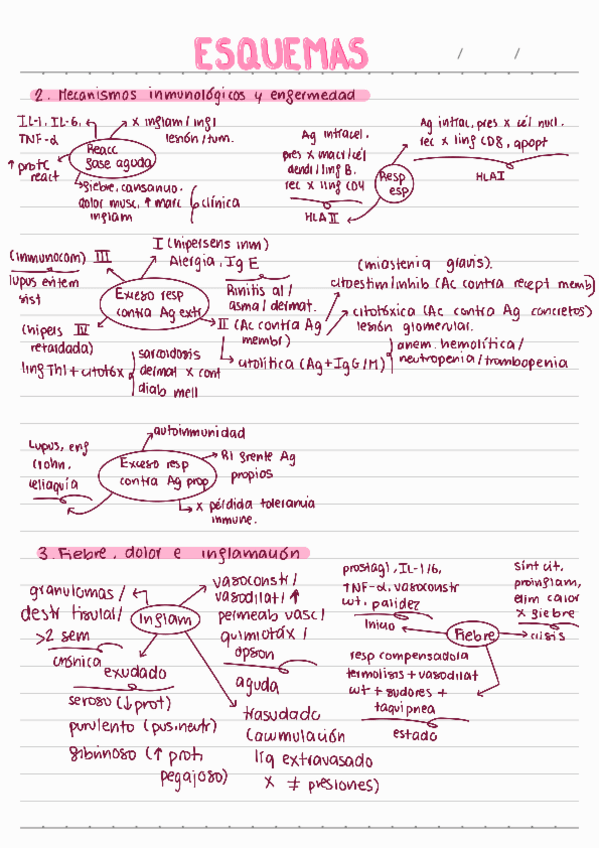 ESQUEMAS
/ /
2. Mecanismos inmunológicos y enfermedad
IL-1, IL-6,
TNF-α
x inflam / infl
lesión/tum.
Reacc
fase aguda
↑ prot C
react
fiebre, cansancio,
dolor musc, ↑ marc
inflam
clínica
Ag intracel.
pres x macr/cél
dendi/linf B.
rec x linf CD4
HLA II
Resp
esp
Ag intrac, pres x cél nucl.
rec x linf CD8, apopt
HLA I
I (hipersens inm)
Alergia, Ig E
Rinitis al/
asma/dermat.
(inmunocom) III
lupus eritem
sist
Exceso resp
contra Ag extr
(hipers IV
retardada)
linf Th1 + citotóx
sarcoidosis
dermat x cont
diab mell
II (Ac contra Ag
membr)
(miastenia gravis).
citoestim/inhib (Ac contra recept memb)
citotóxica (Ac contra Ag concretos)
lesión glomerular.
citolítica (Ag + IgG/M)
anem. hemolítica/
neutropenia/trombopenia
Lupus, enf
Crohn,
celiaquía
autoinmunidad
Exceso resp
contra Ag prop
RI frente Ag
propios
x pérdida tolerancia
inmune.
3. Fiebre, dolor e inflamación
granulomas/
destr tisular/
>2 sem
crónica
Inflam
vasoconstr/
vasodilat/ ↑
permeab vasc/
quimiotáx/
opson
aguda
exudado
seroso (↓ prot)
purulento (pus, neutr)
fibrinoso (↑ prot,
pegajoso)
trasudado
(acumulación
líq extravasado
x ≠ presiones)
prostagl, IL-1/6,
TNF-α, vasoconstr
cut, palidez
Inicio
Fiebre
sínt cit.
proinflam,
elim calor
x fiebre
crisis
resp compensadora
termolisis + vasodilat
cut + sudores +
taquipnea
estado